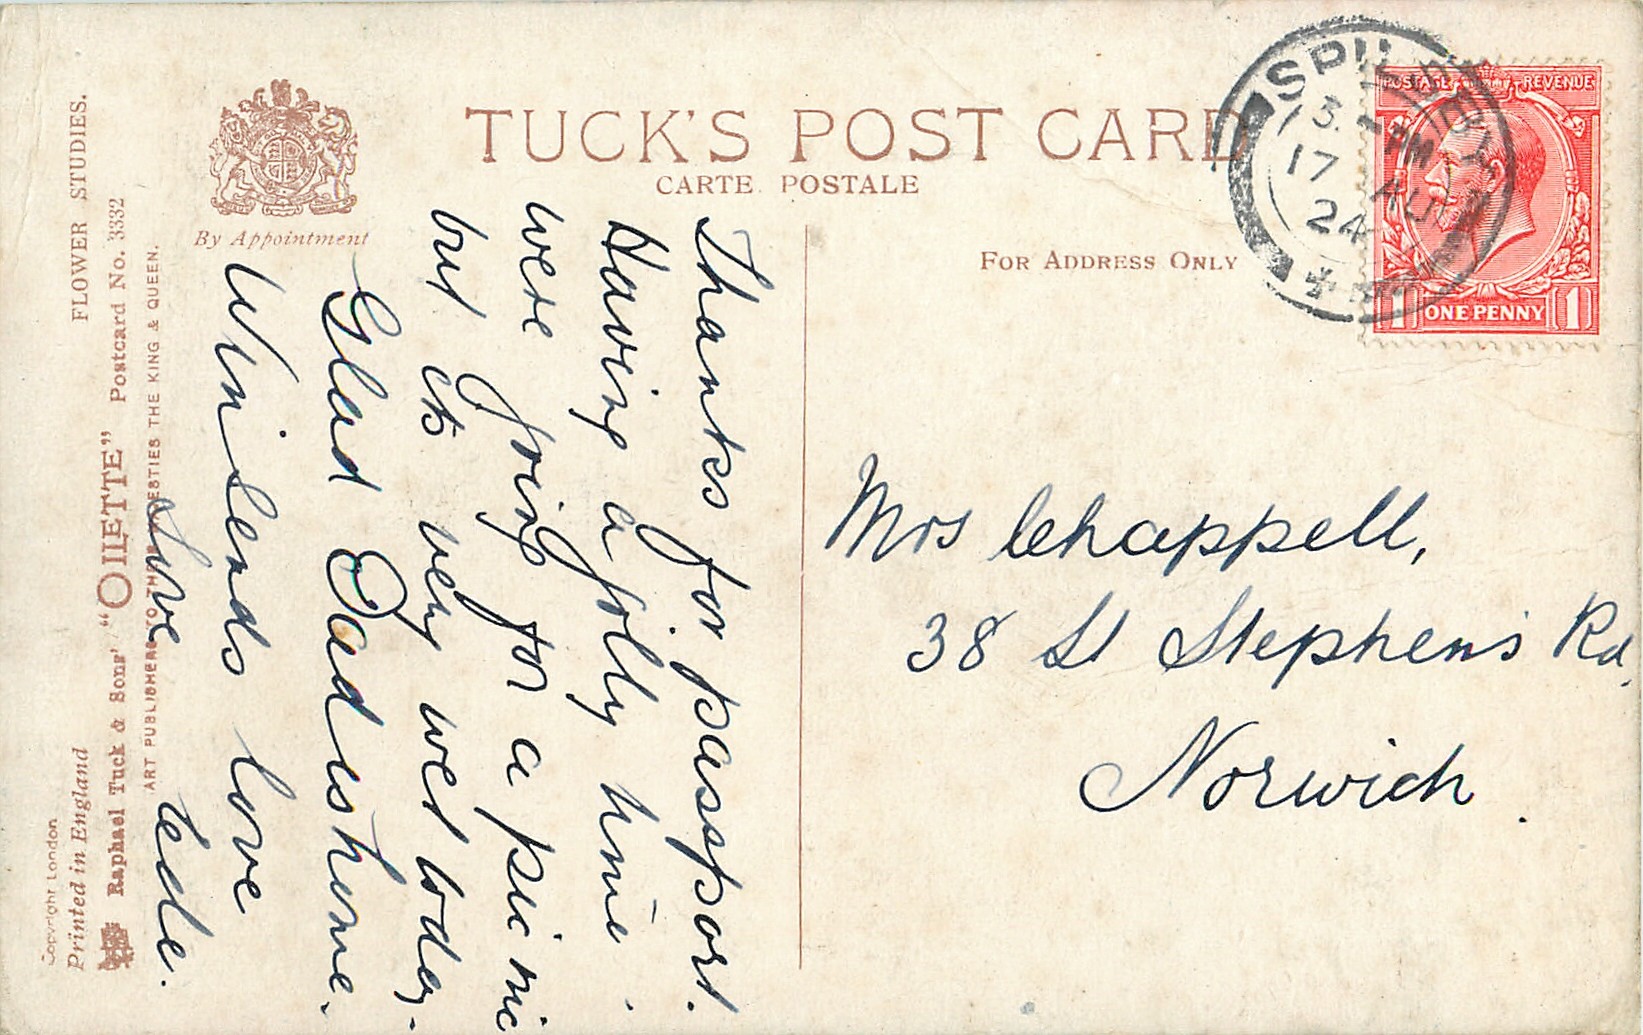 TUCK'S POST CARD
CARTE POSTALE
FOR ADDRESS ONLY
By Appointment
FLOWER STUDIES.
Raphael Tuck & Sons' "OILETTE" Postcard No. 3332
ART PUBLISHERS TO THEIR MAJESTIES THE KING & QUEEN.
Copyright London
Printed in England
3. - PM
17 AU
24
POSTAGE REVENUE
1 ONE PENNY 1
Thanks for passport.
Having a jolly time.
were going for a pic nic
but its very wet today.
Glad Dad is home.
Win sends love
Love Cede.
Mrs Chappell,
38 St Stephens Rd,
Norwich.